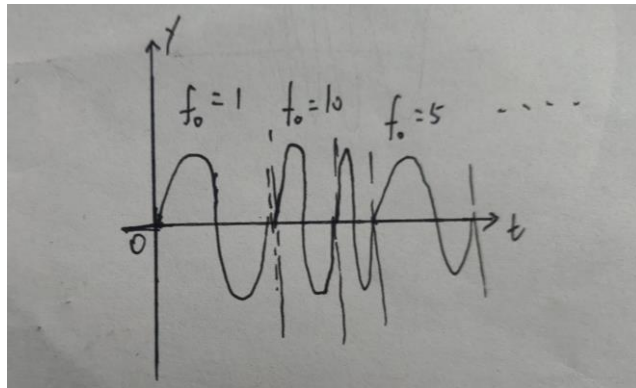 Y
f₀=1 f₀=10 f₀=5 ....
0 t